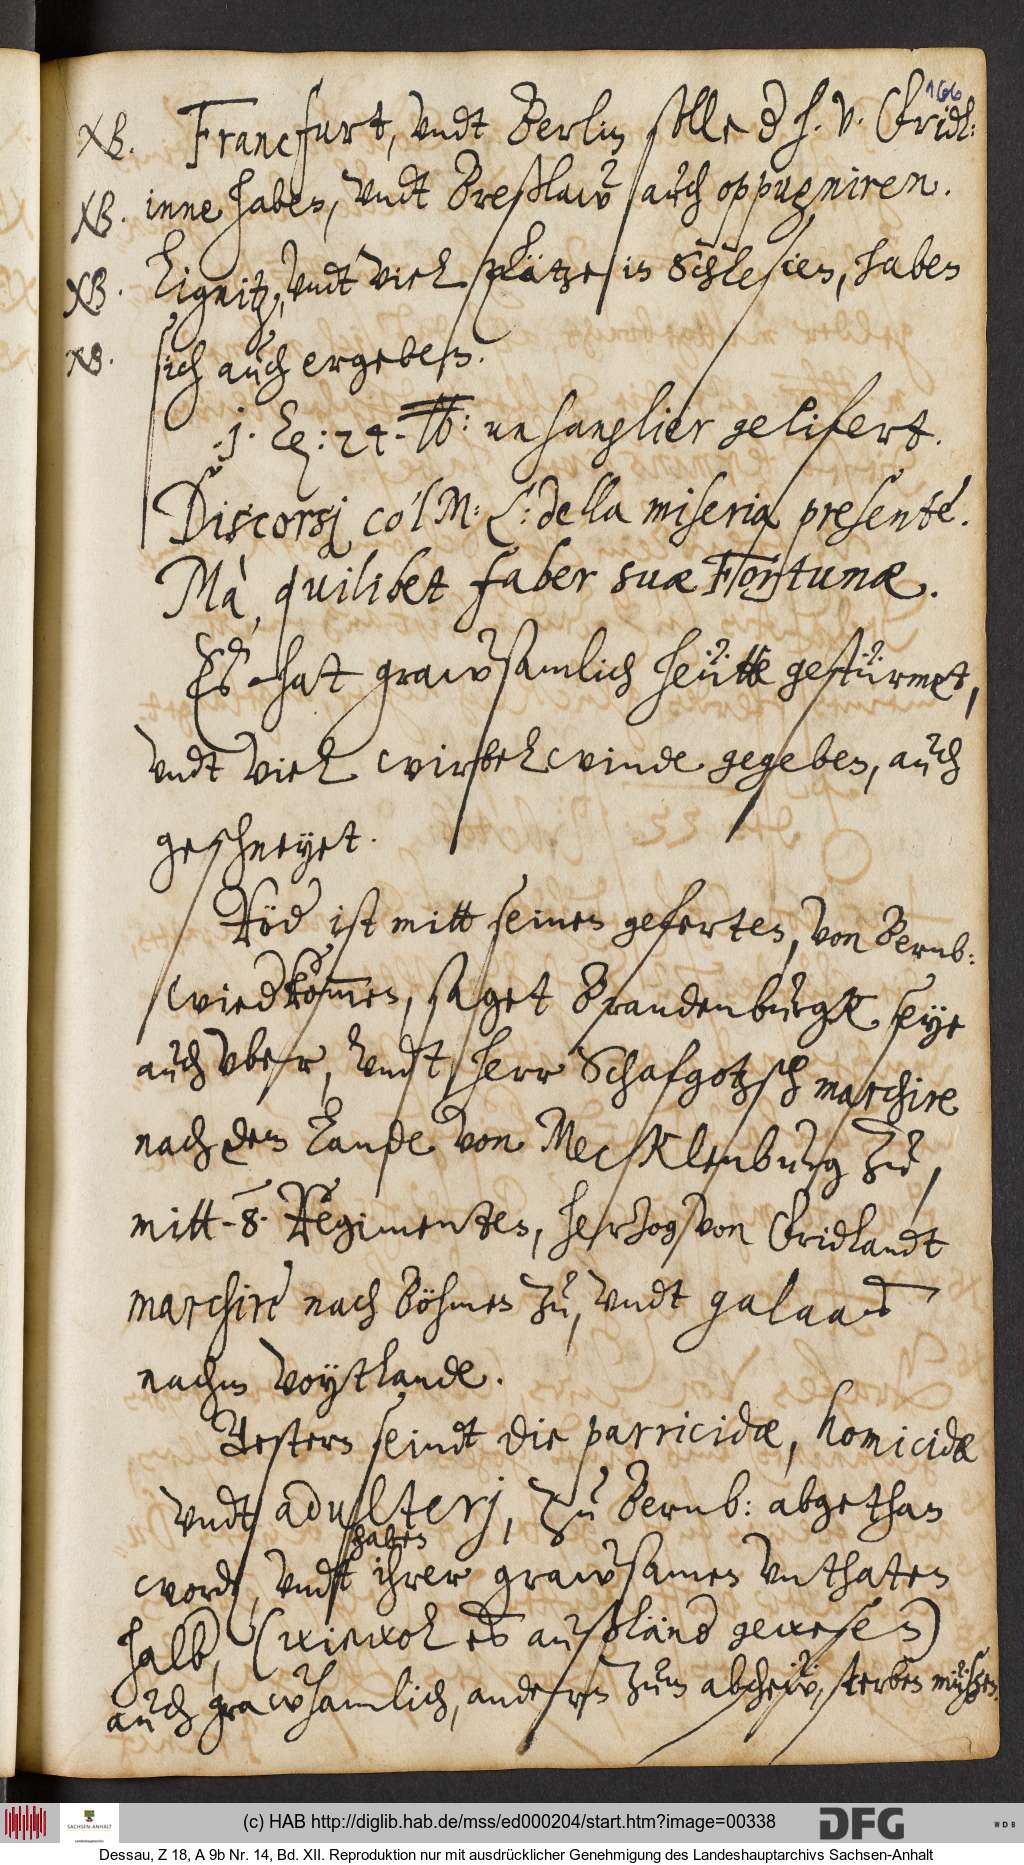 166
XB. Francfurt, vndt Berlin solle d h. v. Fridl:
XB. inne haben, vndt Breßlaw auch oppugniren.
XB. Lignitz, vndt viel plätze in Schlesien, haben
XB. sich auch ergeben.
.j. Eg: 24. ℔: un sanglier gelifert.
Discorsj co'l M: L: della miseria presente.
Mà, quilibet faber suæ Fortunæ.
Es hat grawsamlich heütte gestürmet,
vndt viel wirbelwinde gegeben, auch
geschneyet.
Röd ist mitt seinen geferten, von Bernb:
wied kommen, saget Brandenburgk seye
auch vber, vndt herr Schafgotzsch marchire
nach dem Lande von Mecklenburg zu,
mitt -8- Regimenten, hertzog von Fridlandt
marchire nach Böhmen zu, vndt galaas
nachm Voytlande.
Gestern seindt die parricidæ, homicidæ
vndt adulterj, zu Bernb: abgethan
word, vndt haben ihrer grawsamen vnthaten
halb, (wiewol es außländ gewesen)
auch grawsamlich, andern zum abscheẅ, sterben müßen.
(c) HAB http://diglib.hab.de/mss/ed000204/start.htm?image=00338
SACHSEN-ANHALT
DFG
WDB
Dessau, Z 18, A 9b Nr. 14, Bd. XII. Reproduktion nur mit ausdrücklicher Genehmigung des Landeshauptarchivs Sachsen-Anhalt